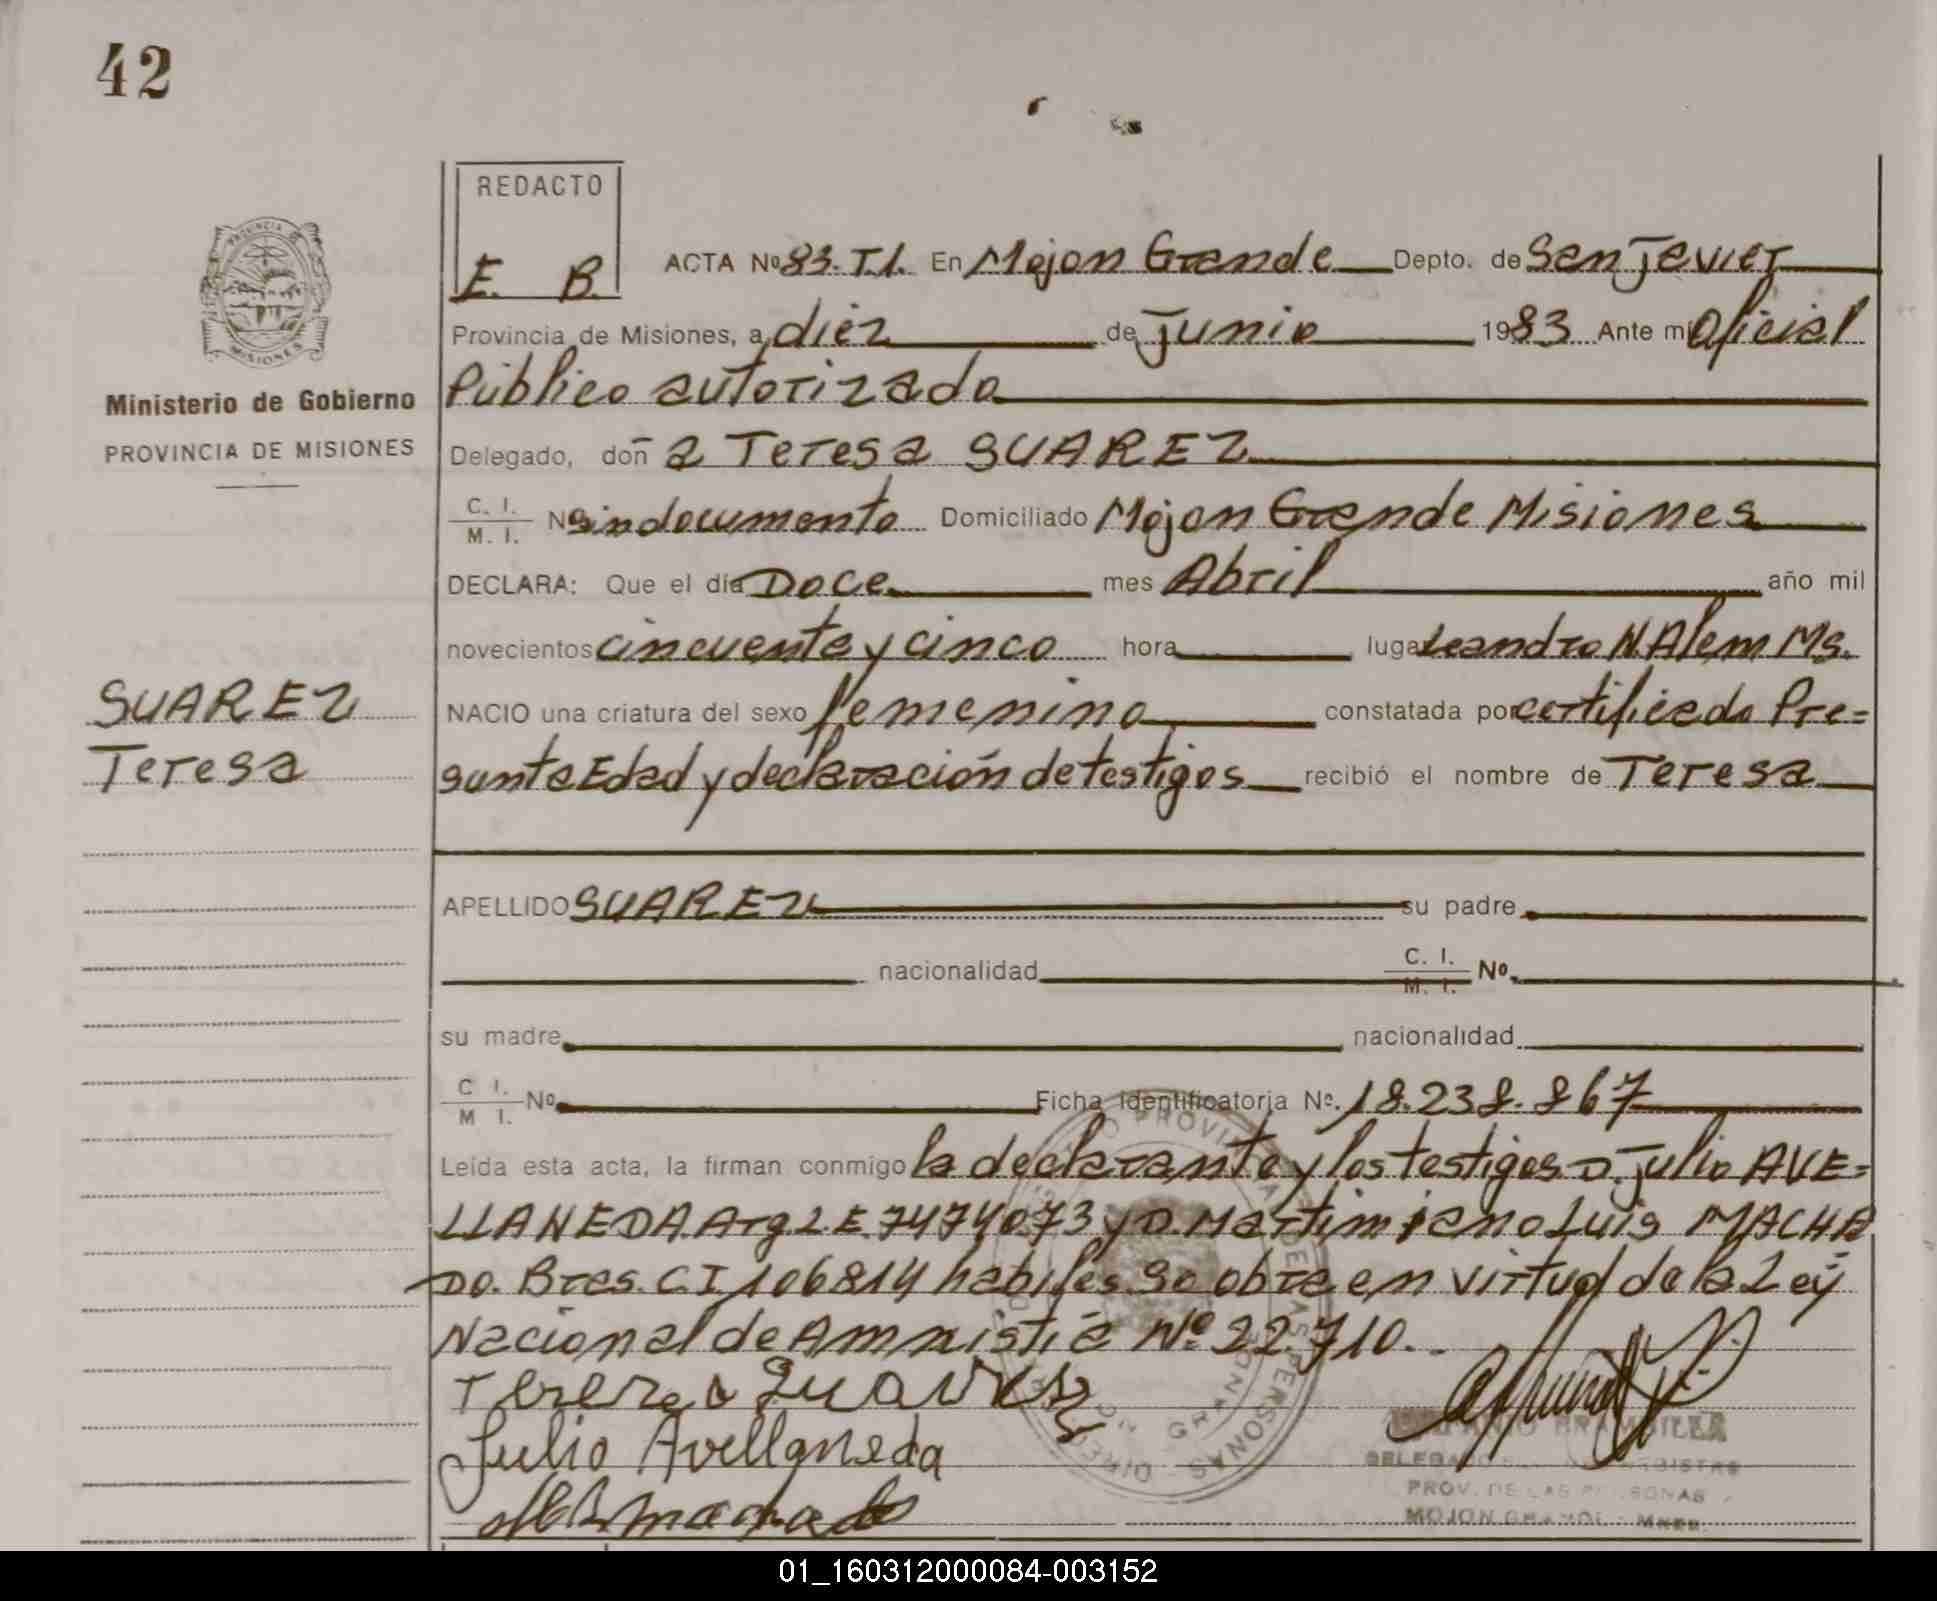 42
REDACTO
E. B.
ACTA Nº 83. T.I. En Mojon Grande Depto. de San Javier
Provincia de Misiones, a diez de junio 1983 Ante mi Oficial
Público autorizado
Ministerio de Gobierno
PROVINCIA DE MISIONES
Delegado, doñ a Teresa SUAREZ
C. I.
M. I. Nº sin documento Domiciliado Mojon Grande Misiones
DECLARA: Que el día Doce mes Abril año mil
novecientos cincuenta y cinco hora lugar Leandro N. Alem Ms.
SUAREZ
Teresa
NACIO una criatura del sexo femenino constatada por certificado Pre=
sunta Edad y declaración de testigos recibió el nombre de Teresa
APELLIDO SUAREZ su padre
nacionalidad C. I.
M. I. Nº
su madre nacionalidad
C I.
M I. Nº Ficha identificatoria Nº. 18.238.867
Leída esta acta, la firman conmigo la declarante y los testigos D. Julio AVE=
LLANEDA. Arg. L.E. 7474073 y D. Martimiano Luis MACHA
DO. Bras. C.I 106814 habiles. Se obra en virtud de la Ley
Nacional de Amnistia Nº 22.710.
Tereza Suarez
Julio Avellaneda
PROV. DE LAS PERSONAS
MOJON GRANDE - MNES.
01_160312000084-003152